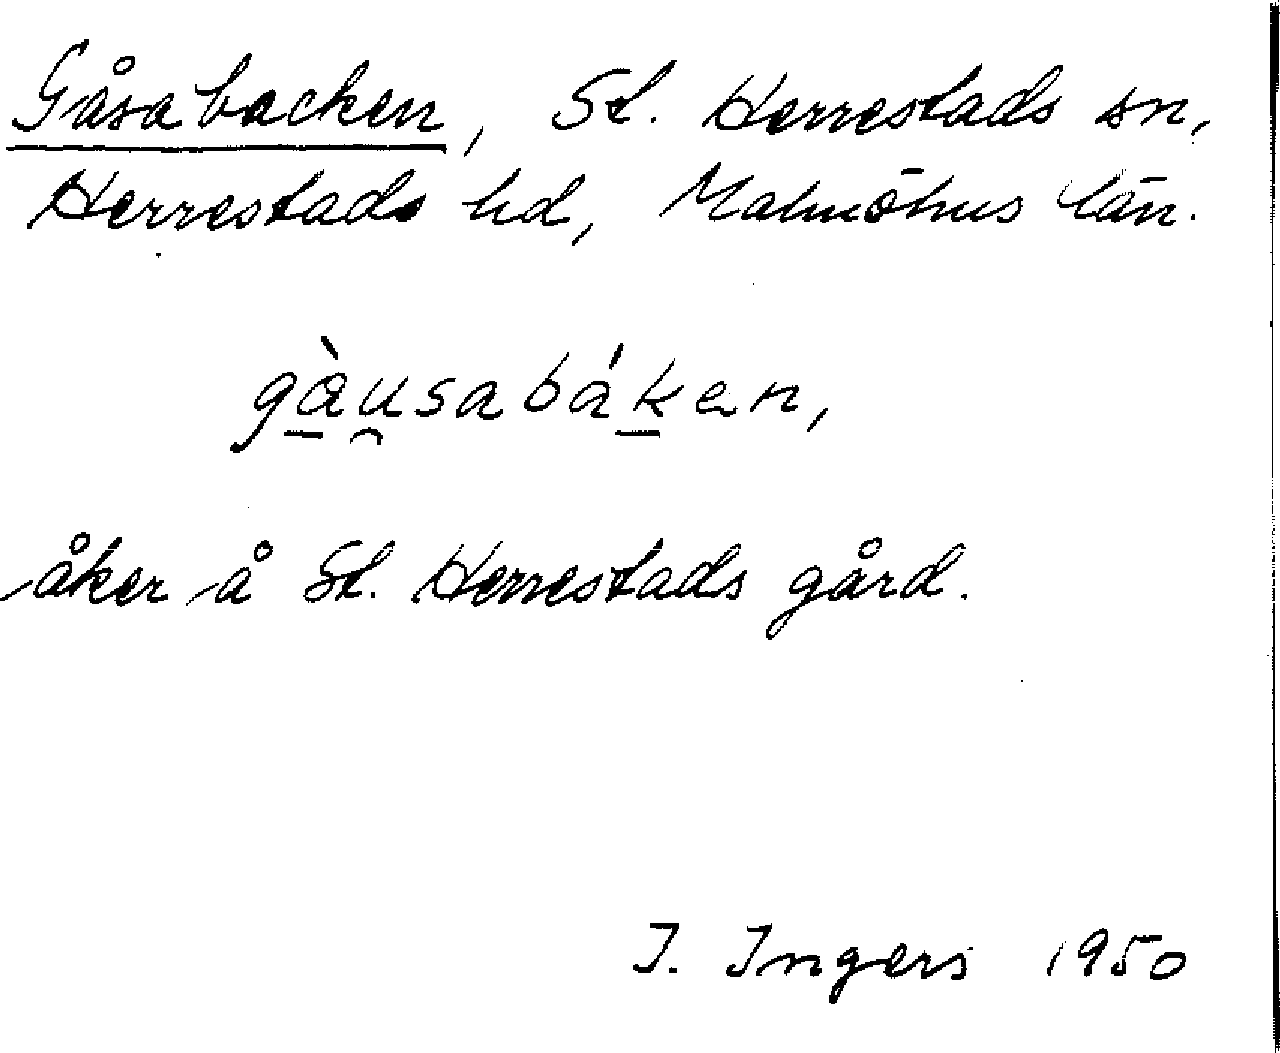 Gåsabacken, St. Herrestads sn,
Herrestads hd, Malmöhus län.
gàu̯sabáken,
åker å St. Herrestads gård.
I. Ingers 1950